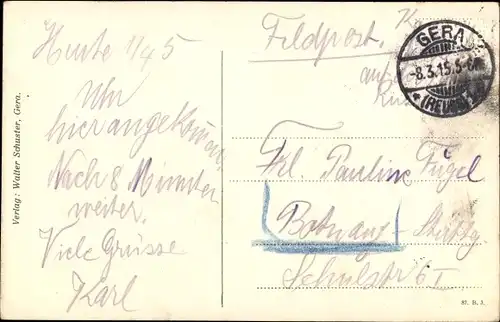 Heute 1/4 5
Uhr
hier angekommen
Nach 8 Minuten
weiter.
Viele Grüsse
Karl
Verlag: Walter Schuster, Gera.
Feldpost.
GERA
-8.3.15.5-6N
(REUSS)
Frl. Pauline Fügel
Botnang-Stuttg
Schulstr 6 I
87. B. J.